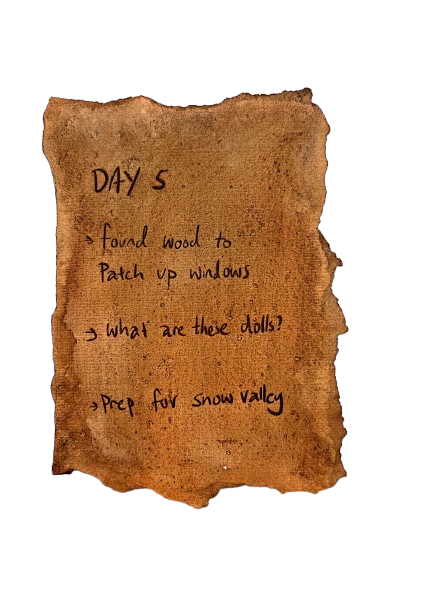 DAY 5
→ found wood to
Patch up windows
→ What are these dolls?
→ Prep for snow valley